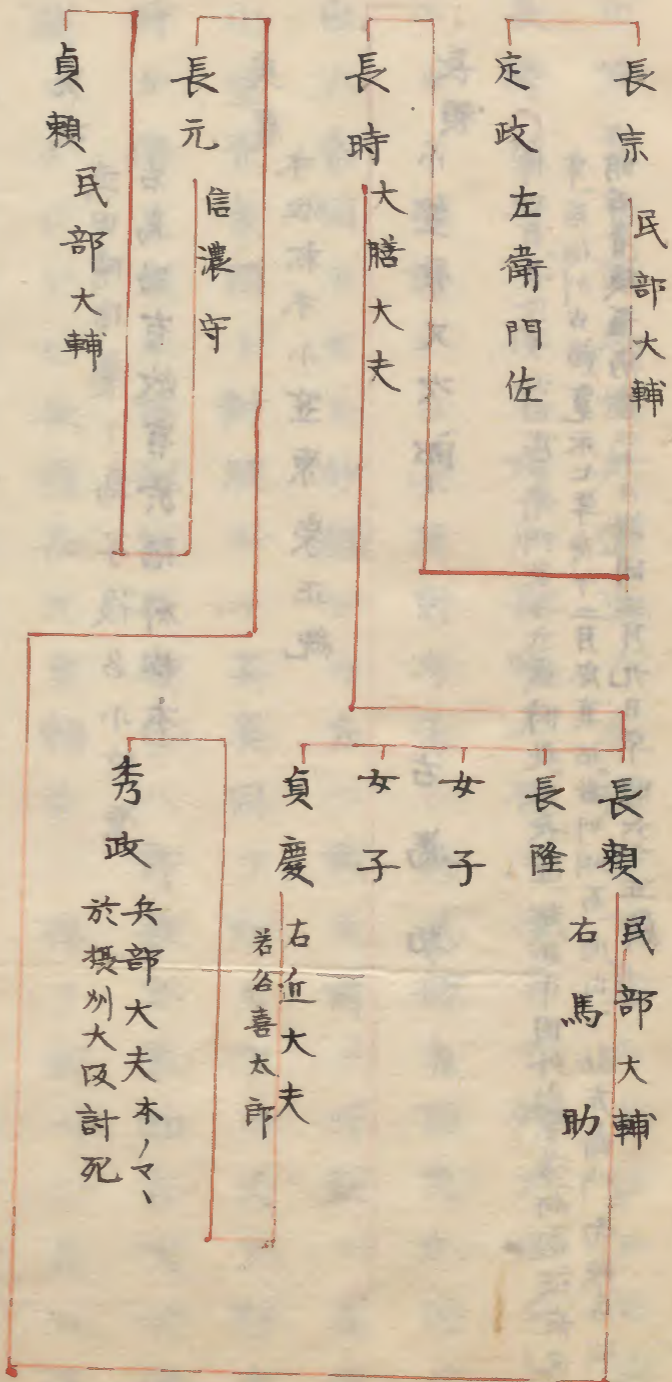 長宗 民部大輔
定政 左衛門佐
長時 大膳大夫
長元 信濃守
貞頼 民部大輔
長頼 民部大輔
右馬助
長隆
女子
女子
貞慶 右近大夫
若谷喜太郎
秀政 兵部大夫本ノマヽ
於摂州大阪討死